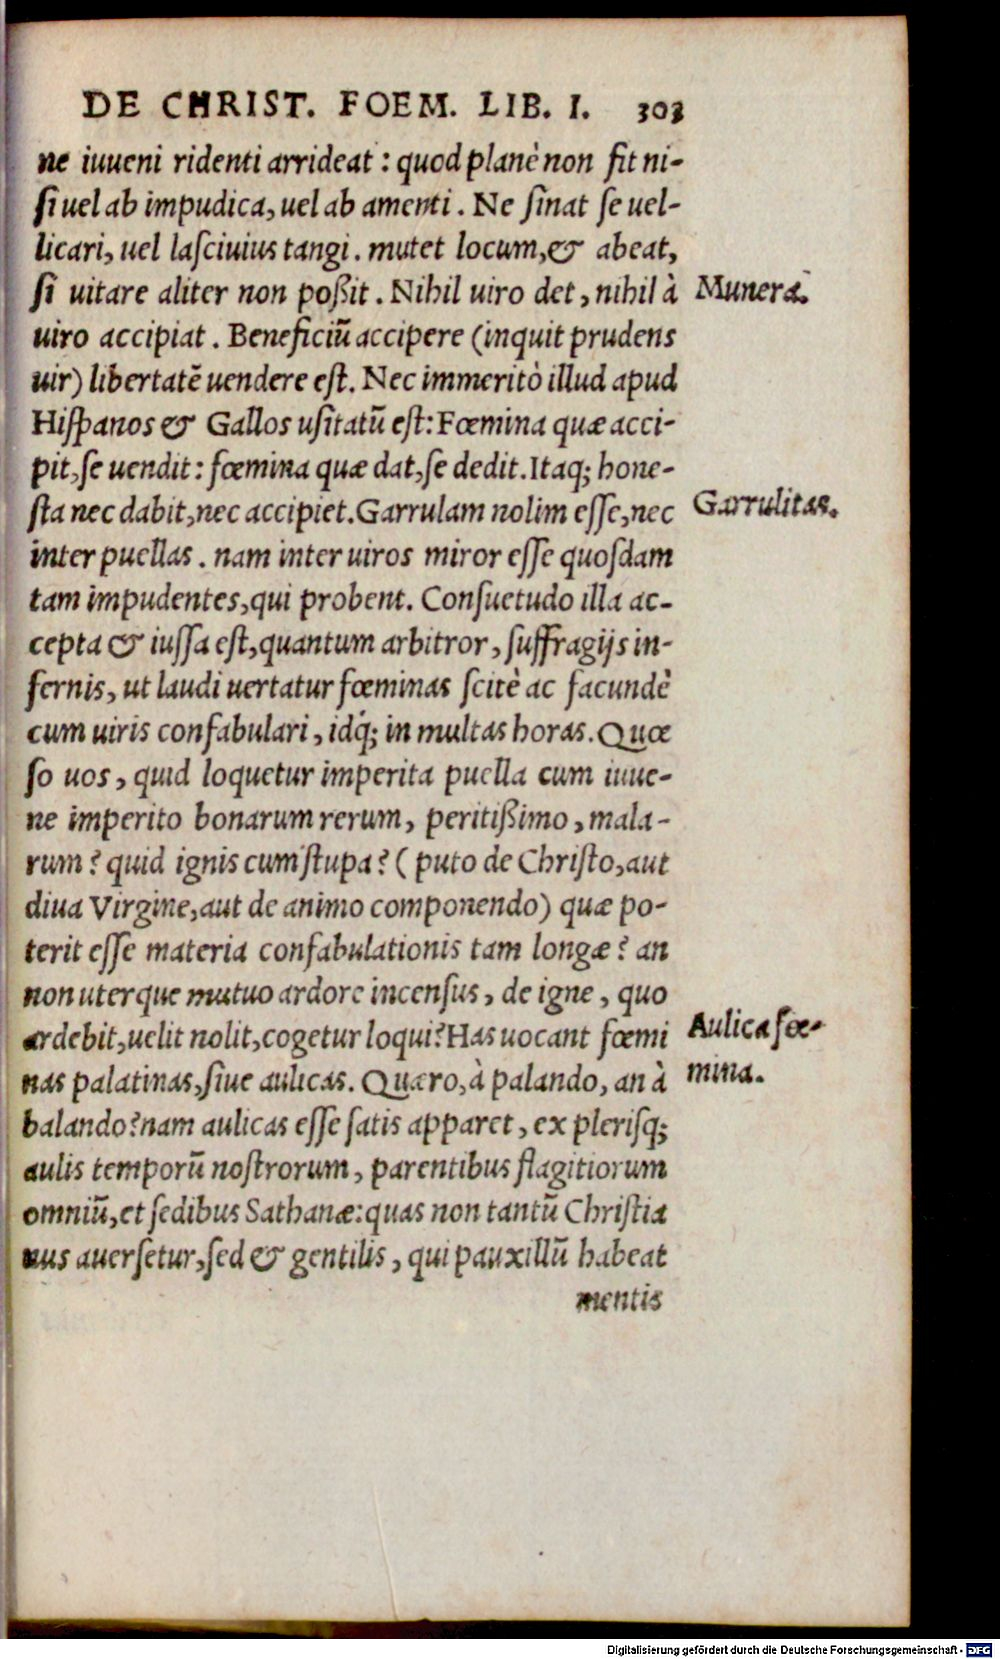 DE CHRIST. FOEM. LIB. I. 303
ne iuueni ridenti arrideat : quod planè non ſit ni-
ſi uel ab impudica, uel ab amenti . Ne ſinat ſe uel-
licari, uel laſciuius tangi . mutet locum, & abeat,
ſi uitare aliter non poßit . Nihil uiro det , nihil à
Munera.
uiro accipiat . Beneficiū accipere (inquit prudens
uir) libertatē uendere eſt. Nec immeritò illud apud
Hiſpanos & Gallos uſitatū eſt: Fœmina quæ acci-
pit, ſe uendit : fœmina quæ dat, ſe dedit. Itaq; hone-
ſta nec dabit, nec accipiet. Garrulam nolim eſſe, nec
Garrulitas.
inter puellas . nam inter uiros miror eſſe quoſdam
tam impudentes, qui probent. Conſuetudo illa ac-
cepta & iuſſa eſt, quantum arbitror , ſuffragijs in-
fernis, ut laudi uertatur fœminas ſcitè ac facundè
cum uiris confabulari , idq́; in multas horas. Quæ
ſo uos , quid loquetur imperita puella cum iuue-
ne imperito bonarum rerum, peritißimo , mala-
rum ? quid ignis cum ſtupa ? ( puto de Chriſto, aut
diua Virgine, aut de animo componendo) quæ po-
terit eſſe materia confabulationis tam longæ ? an
non uterque mutuo ardore incenſus , de igne , quo
ardebit, uelit nolit, cogetur loqui? Has uocant fœmi
Aulica fœ-
mina.
nas palatinas, ſiue aulicas. Quæro, à palando, an à
balando? nam aulicas eſſe ſatis apparet , ex pleriſq;
aulis temporū noſtrorum , parentibus flagitiorum
omniū, et ſedibus Sathanæ: quas non tantū Chriſtia
nus auerſetur, ſed & gentilis , qui pauxillū habeat
mentis
Digitalisierung gefördert durch die Deutsche Forschungsgemeinschaft - DFG